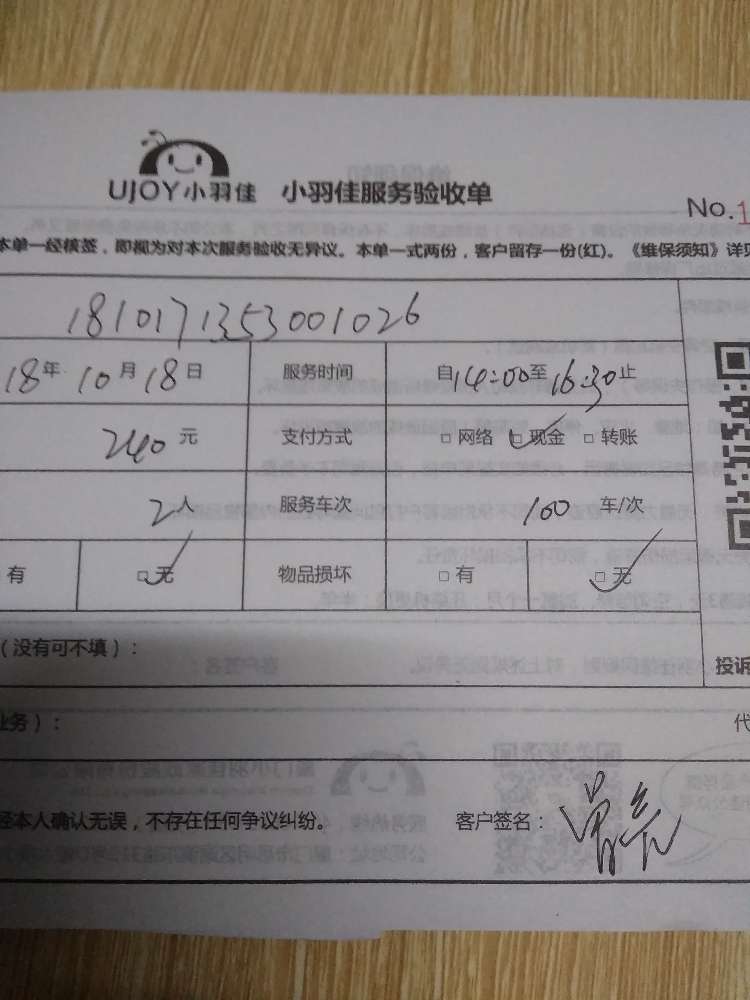 UJOY小羽佳 小羽佳服务验收单
No.1
本单一经核签，即视为对本次服务验收无异议。本单一式两份，客户留存一份(红)。《维保须知》详见
1810171353001026
18年10月18日 服务时间 自14:00至16:30止
240元 支付方式 □网络 □现金 □转账
2人 服务车次 100 车/次
有 □无 物品损坏 □有 □无
（没有可不填）：
投诉
业务）：
代
经本人确认无误，不存在任何争议纠纷。 客户签名：